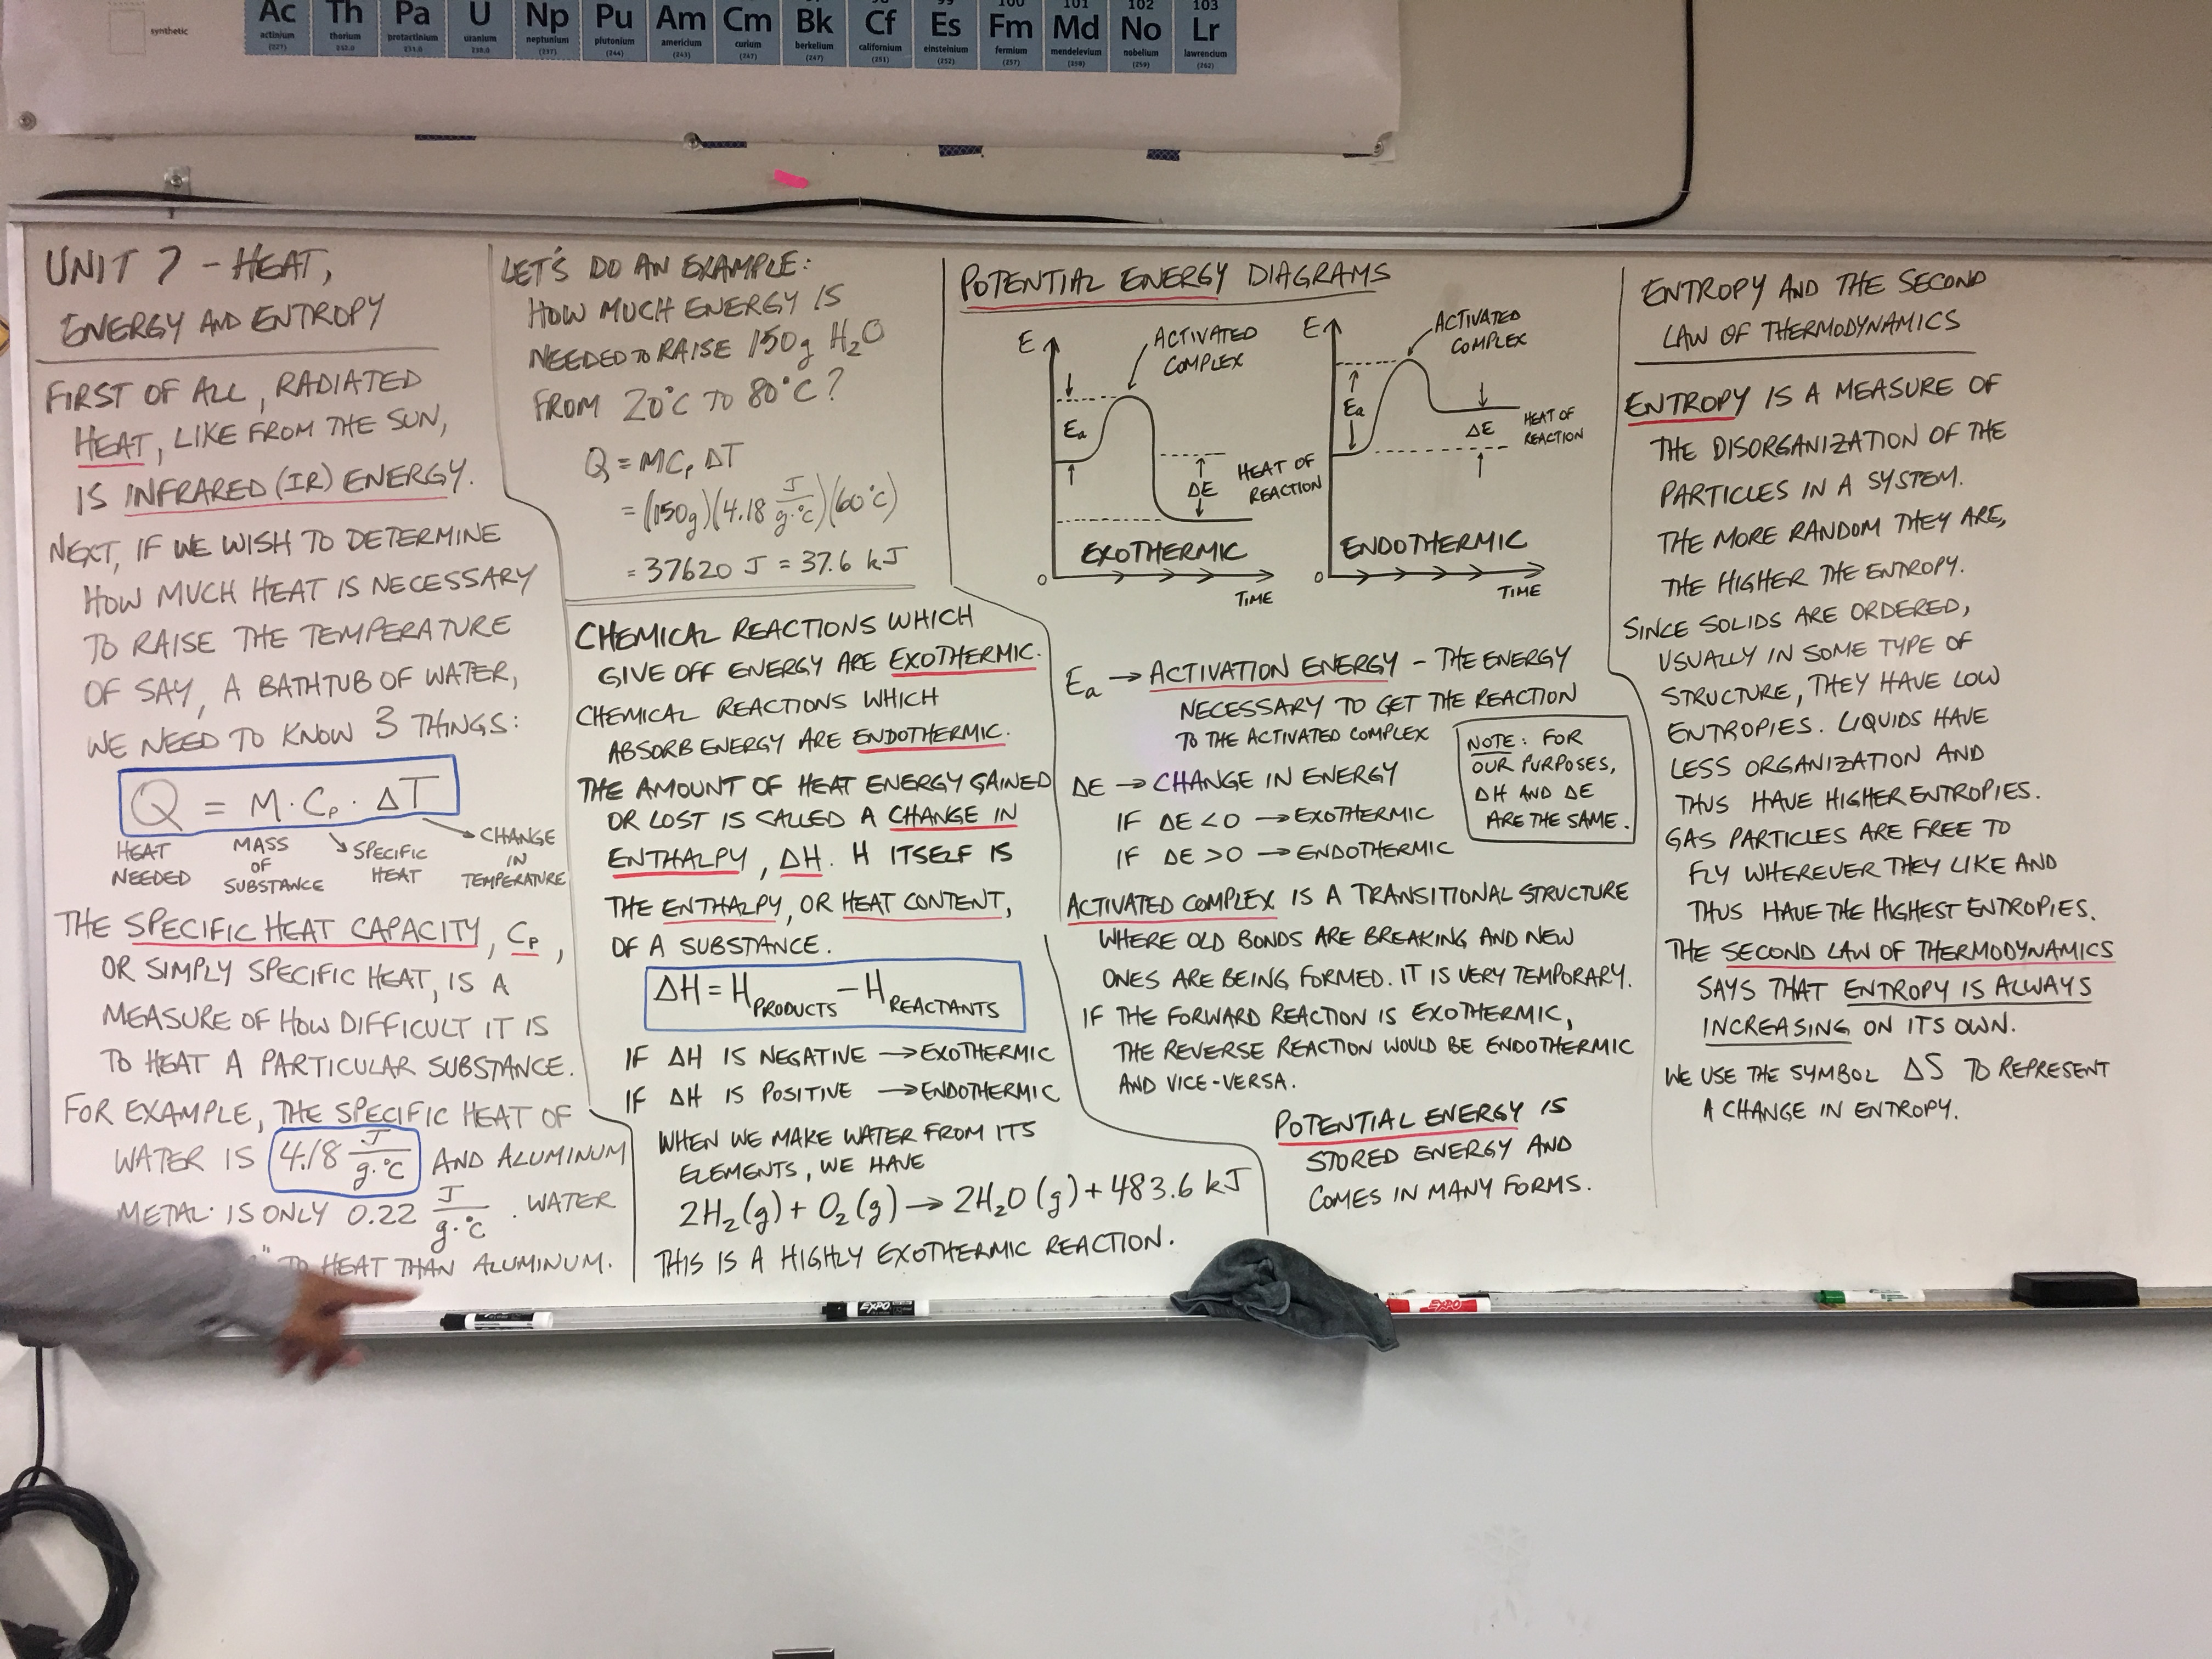 synthetic
Ac Th Pa U Np Pu Am Cm Bk Cf Es Fm Md No Lr
actinium thorium protactinium uranium neptunium plutonium americium curium berkelium californium einsteinium fermium mendelevium nobelium lawrencium
(227) 232.0 231.0 238.0 (237) (244) (243) (247) (247) (251) (252) (257) (258) (259) (262)
UNIT 7 - HEAT,
ENERGY AND ENTROPY
FIRST OF ALL, RADIATED
HEAT, LIKE FROM THE SUN,
IS INFRARED (IR) ENERGY.
NEXT, IF WE WISH TO DETERMINE
HOW MUCH HEAT IS NECESSARY
TO RAISE THE TEMPERATURE
OF SAY, A BATHTUB OF WATER,
WE NEED TO KNOW 3 THINGS:
Q = M · Cp · ΔT
HEAT NEEDED
MASS OF SUBSTANCE
SPECIFIC HEAT
CHANGE IN TEMPERATURE
THE SPECIFIC HEAT CAPACITY, Cp,
OR SIMPLY SPECIFIC HEAT, IS A
MEASURE OF HOW DIFFICULT IT IS
TO HEAT A PARTICULAR SUBSTANCE.
FOR EXAMPLE, THE SPECIFIC HEAT OF
WATER IS 4.18 J/g·°C AND ALUMINUM
METAL IS ONLY 0.22 J/g·°C. WATER
" TO HEAT THAN ALUMINUM.
LET'S DO AN EXAMPLE:
HOW MUCH ENERGY IS
NEEDED TO RAISE 150g H₂O
FROM 20°C TO 80°C?
Q = MCp ΔT
= (150g)(4.18 J/g·°C)(60°C)
= 37620 J = 37.6 kJ
CHEMICAL REACTIONS WHICH
GIVE OFF ENERGY ARE EXOTHERMIC.
CHEMICAL REACTIONS WHICH
ABSORB ENERGY ARE ENDOTHERMIC.
THE AMOUNT OF HEAT ENERGY GAINED
OR LOST IS CALLED A CHANGE IN
ENTHALPY, ΔH. H ITSELF IS
THE ENTHALPY, OR HEAT CONTENT,
OF A SUBSTANCE.
ΔH = H PRODUCTS - H REACTANTS
IF ΔH IS NEGATIVE → EXOTHERMIC
IF ΔH IS POSITIVE → ENDOTHERMIC
WHEN WE MAKE WATER FROM ITS
ELEMENTS, WE HAVE
2H₂(g) + O₂(g) → 2H₂O(g) + 483.6 kJ
THIS IS A HIGHLY EXOTHERMIC REACTION.
POTENTIAL ENERGY DIAGRAMS
E
ACTIVATED
COMPLEX
Ea
ΔE
HEAT OF
REACTION
EXOTHERMIC
0
TIME
E
ACTIVATED
COMPLEX
Ea
ΔE
HEAT OF
REACTION
ENDOTHERMIC
0
TIME
Ea → ACTIVATION ENERGY - THE ENERGY
NECESSARY TO GET THE REACTION
TO THE ACTIVATED COMPLEX
ΔE → CHANGE IN ENERGY
IF ΔE < 0 → EXOTHERMIC
IF ΔE > 0 → ENDOTHERMIC
NOTE: FOR
OUR PURPOSES,
ΔH AND ΔE
ARE THE SAME.
ACTIVATED COMPLEX IS A TRANSITIONAL STRUCTURE
WHERE OLD BONDS ARE BREAKING AND NEW
ONES ARE BEING FORMED. IT IS VERY TEMPORARY.
IF THE FORWARD REACTION IS EXOTHERMIC,
THE REVERSE REACTION WOULD BE ENDOTHERMIC
AND VICE-VERSA.
POTENTIAL ENERGY IS
STORED ENERGY AND
COMES IN MANY FORMS.
ENTROPY AND THE SECOND
LAW OF THERMODYNAMICS
ENTROPY IS A MEASURE OF
THE DISORGANIZATION OF THE
PARTICLES IN A SYSTEM.
THE MORE RANDOM THEY ARE,
THE HIGHER THE ENTROPY.
SINCE SOLIDS ARE ORDERED,
USUALLY IN SOME TYPE OF
STRUCTURE, THEY HAVE LOW
ENTROPIES. LIQUIDS HAVE
LESS ORGANIZATION AND
THUS HAVE HIGHER ENTROPIES.
GAS PARTICLES ARE FREE TO
FLY WHEREVER THEY LIKE AND
THUS HAVE THE HIGHEST ENTROPIES.
THE SECOND LAW OF THERMODYNAMICS
SAYS THAT ENTROPY IS ALWAYS
INCREASING ON ITS OWN.
WE USE THE SYMBOL ΔS TO REPRESENT
A CHANGE IN ENTROPY.
EXPO
EXPO